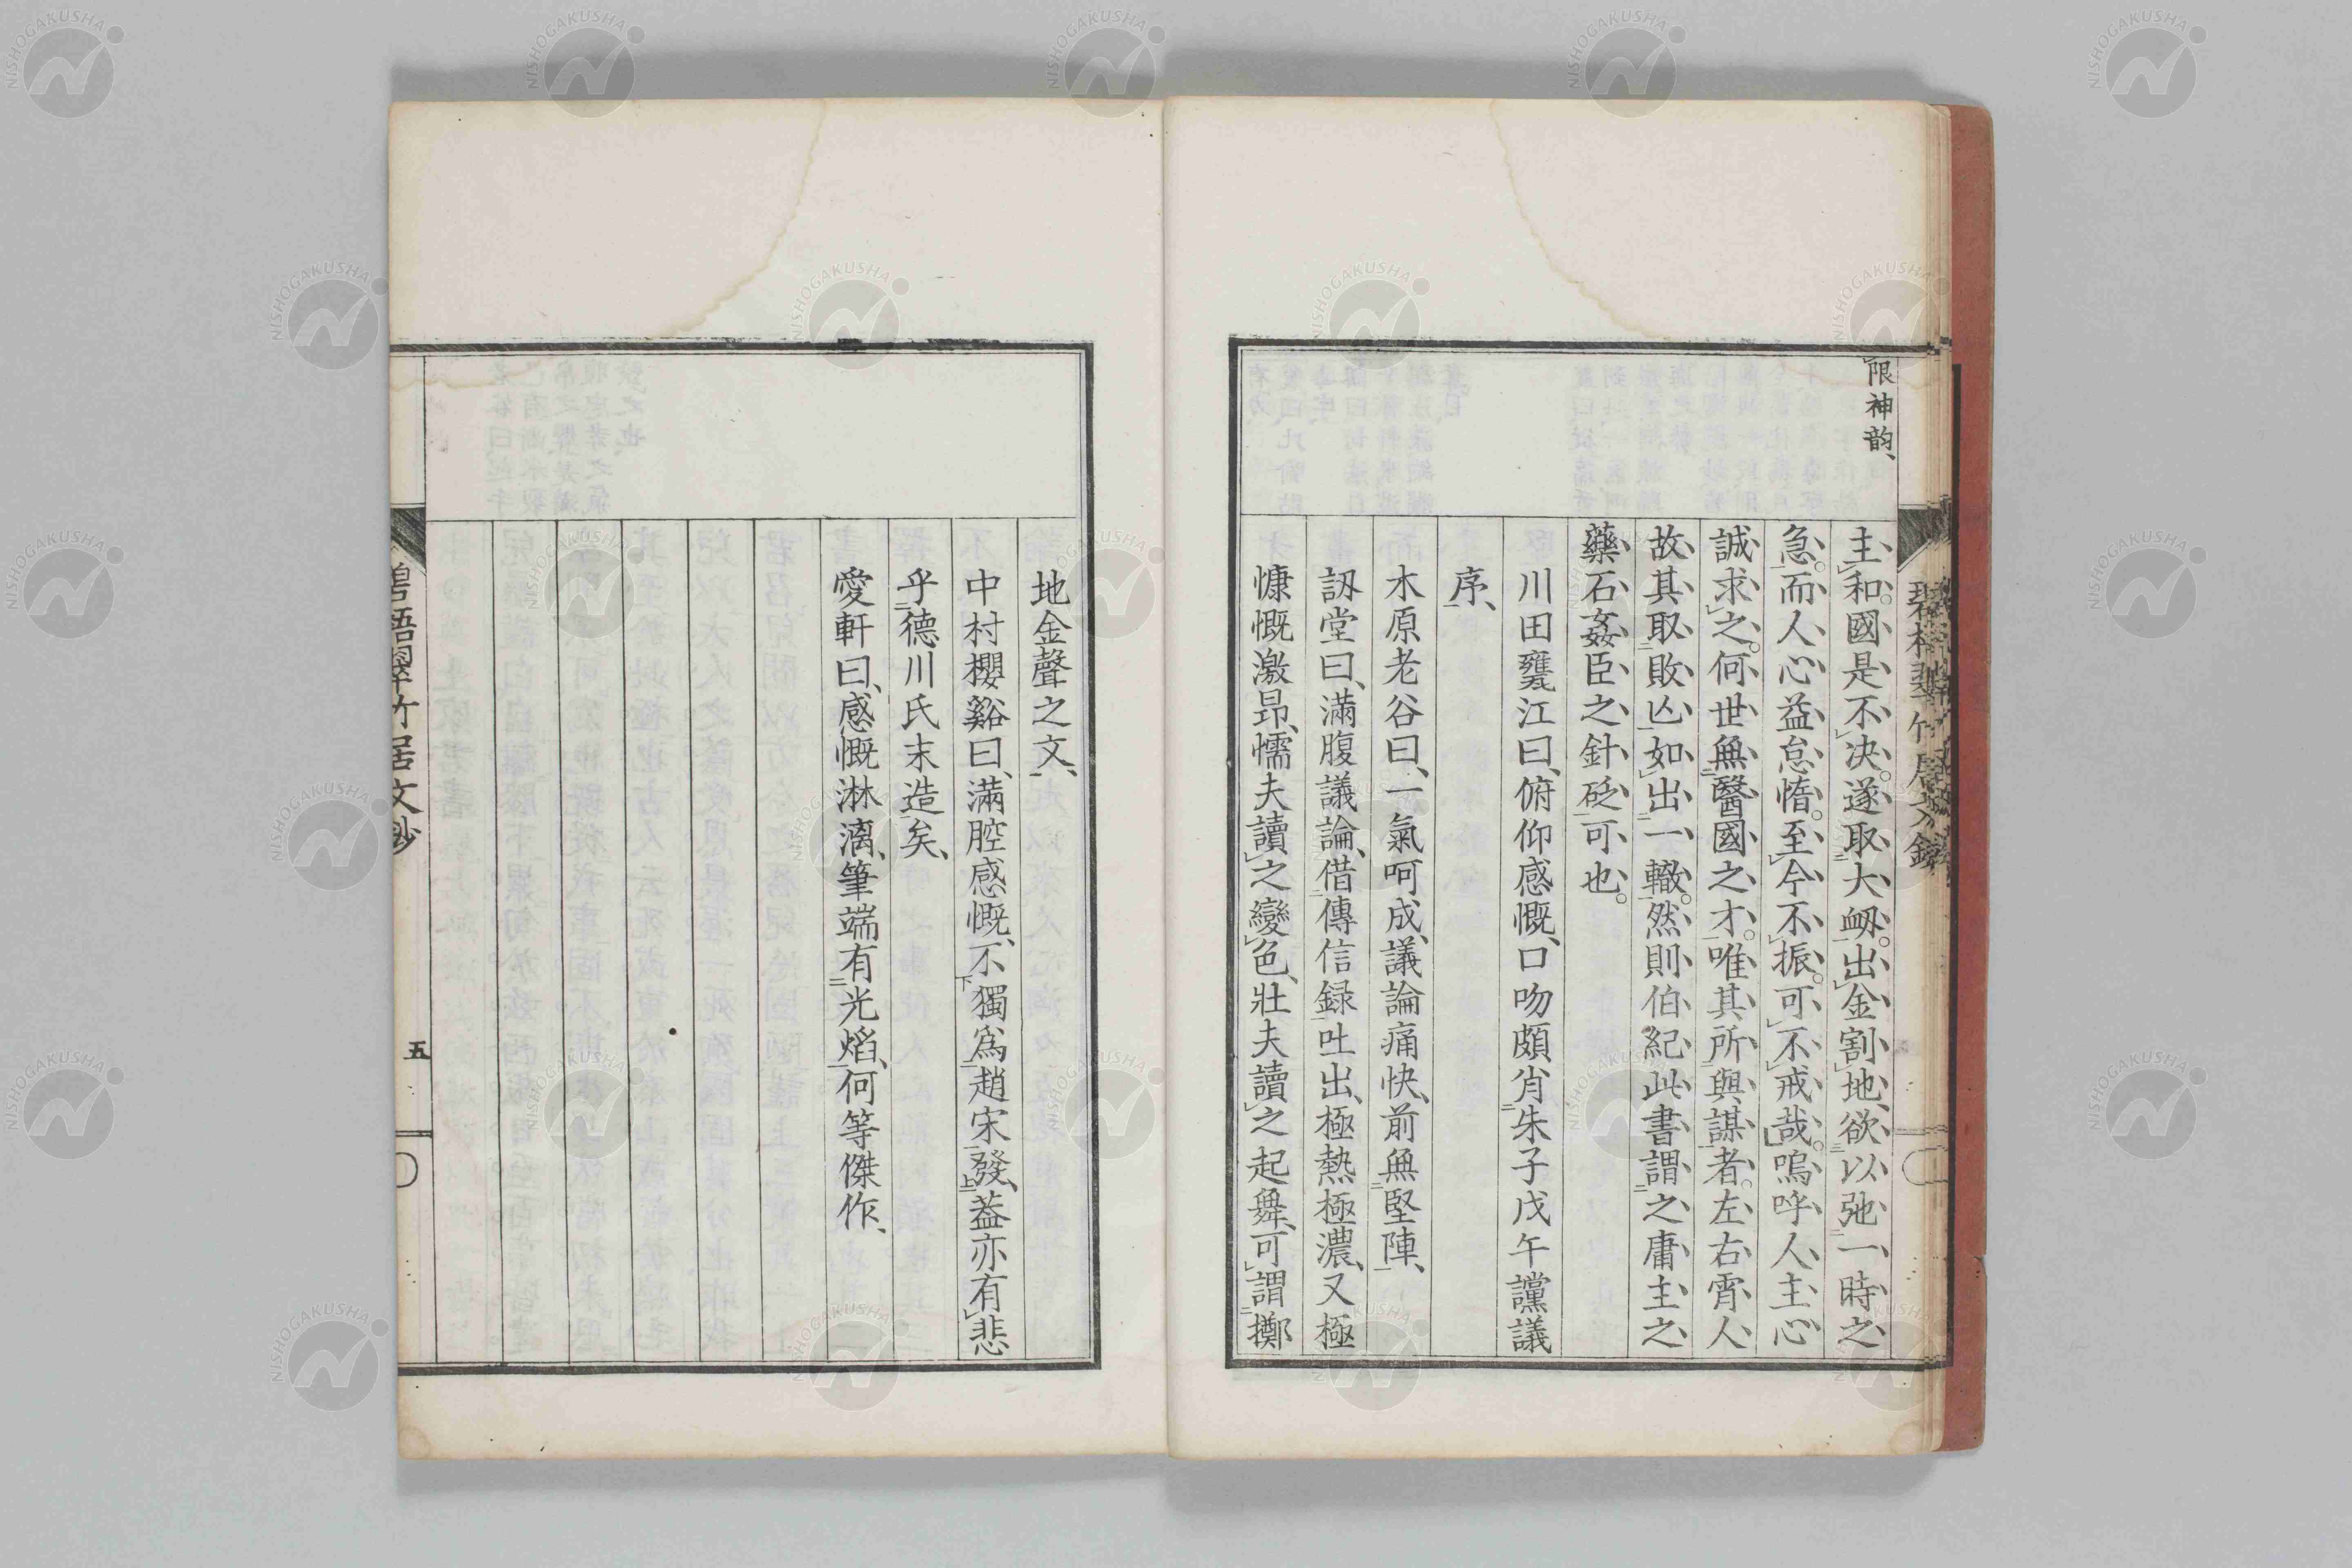 限神韵、
主和。國是不決。遂取大衂。出金割地、欲以弛一時之
急。而人心益怠惰。至今不振。可不戒哉。嗚呼人主心
誠求之。何世無醫國之才。唯其所與謀者。左右宵人
故其取敗亾如出一轍。然則伯紀此書謂之庸主之
藥石姦臣之針砭可也。
川田甕江曰、俯仰感慨、口吻頗肖朱子戊午讜議
序、
木原老谷曰、一氣呵成、議論痛快、前無堅陣、
訒堂曰、滿腹議論、借傳信録吐出、極熱極濃、又極
慷慨激昂、懦夫讀之變色、壯夫讀之起舞、可謂擲
地金聲之文、
中村櫻谿曰、滿腔感慨、不獨爲趙宋發、葢亦有悲
乎德川氏末造矣、
愛軒曰、感慨淋漓、筆端有光焰、何等傑作、
碧梧翠竹居文鈔
五
NISHOGAKUSHA